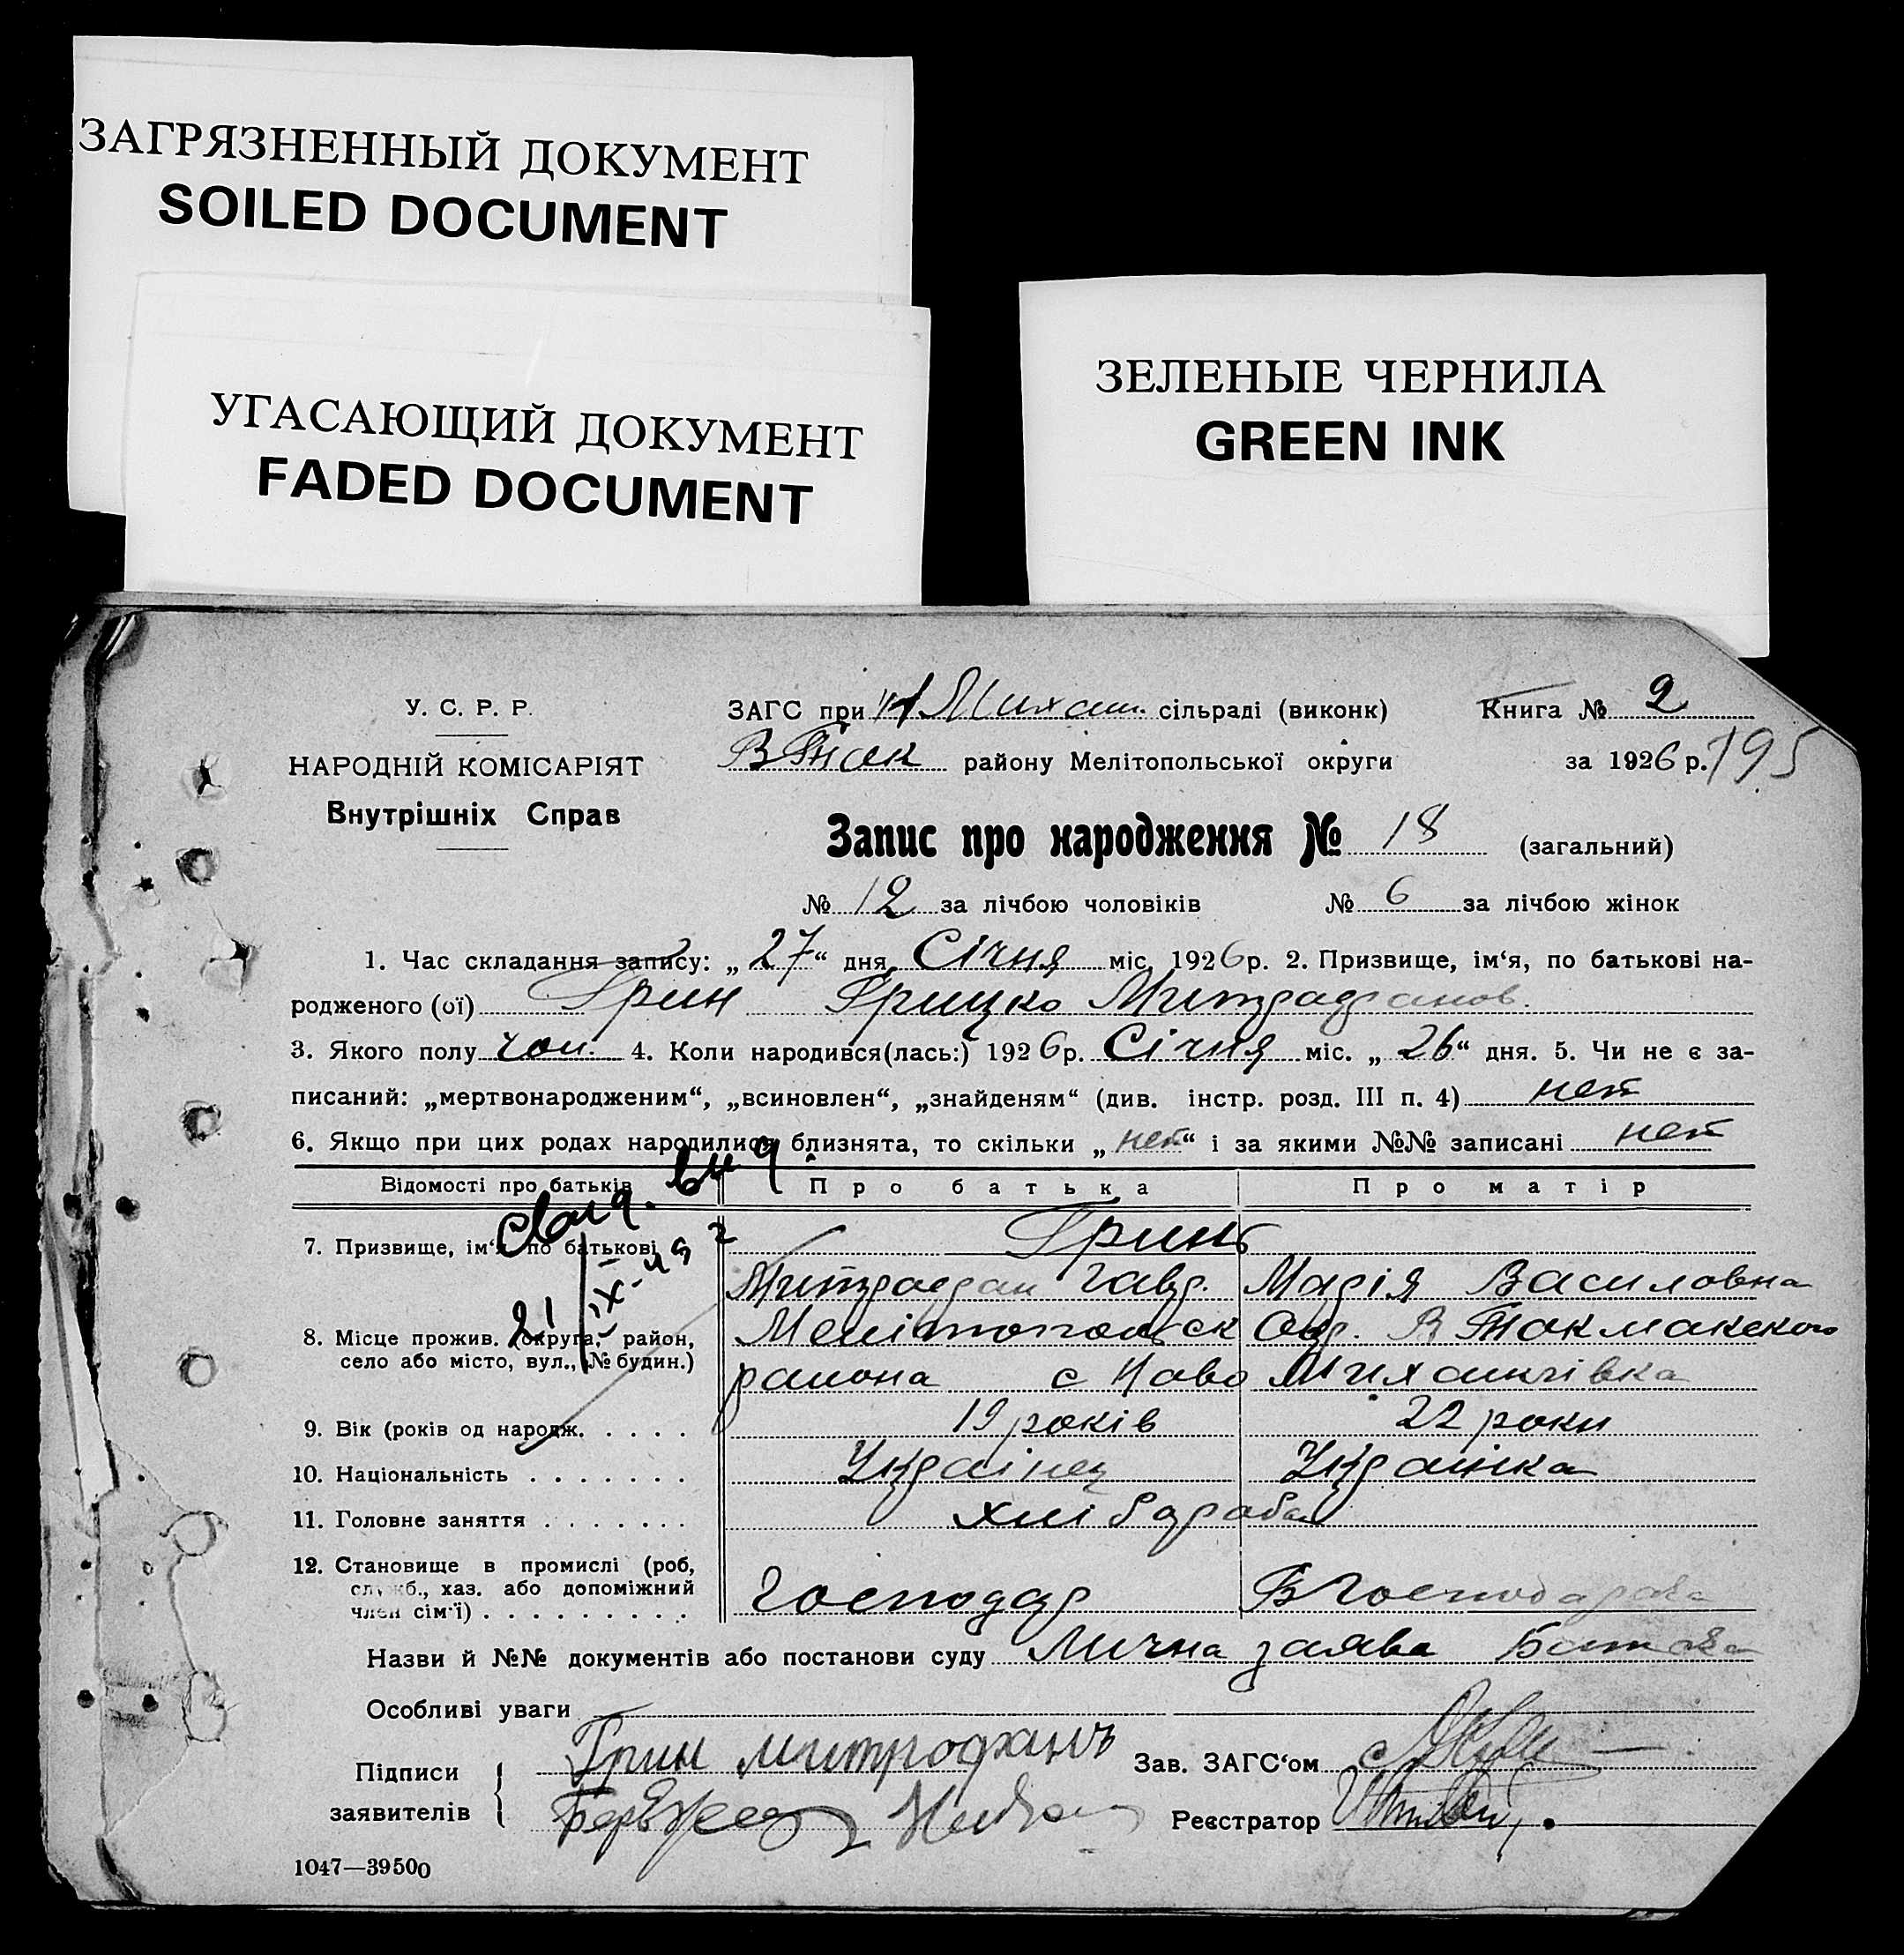 ЗАГРЯЗНЕННЫЙ ДОКУМЕНТ
SOILED DOCUMENT
УГАСАЮЩИЙ ДОКУМЕНТ
FADED DOCUMENT
ЗЕЛЕНЫЕ ЧЕРНИЛА
GREEN INK
У. С. Р. Р.
НАРОДНІЙ КОМІСАРІЯТ
Внутрішніх Справ
ЗАГС при Н Михай. сільраді (виконк)
В Ток району Мелітопольської округи
Книга № 2
за 1926 р.
195
Запис про народження № 18 (загальний)
№ 12 за лічбою чоловіків № 6 за лічбою жінок
1. Час складання запису: „27“ дня Січня міс. 1926 р. 2. Призвище, ім‘я, по батькові на-
родженого (ої) Грин Грицко Митрафанов.
3. Якого полу чол. 4. Коли народився(лась:) 1926 р. Січня міс. „26“ дня. 5. Чи не є за-
писаний: „мертвонародженим“, „всиновлен“, „знайденям“ (див. інстр. розд. III п. 4) нет
6. Якщо при цих родах народилися близнята, то скільки „нет“ і за якими №№ записані нет
Відомості про батьків Про батька Про матір
7. Призвище, ім‘я по батькові Гринь
Митрафан Гавр. Марія Василовна
8. Місце прожив. (округа, район, Мелітопольск Окр. В Токмакского
село або місто, вул., № будин.) района с Ново Михайлівка
9. Вік (років од народж. . . . . 19 років 22 роки
10. Національність . . . . . . . Українец Українка
11. Головне заняття . . . . . . . хліборобсв
12. Становище в промислі (роб,
служб., хаз. або допоміжний
член сім‘ї) . . . . . . . . . Господар
Назви й №№ документів або постанови суду Лична заява Батька
Особливі уваги
Підписи
заявителів
Грин митрофанъ
Зав. ЗАГС‘ом
Реєстратор
1047—39500